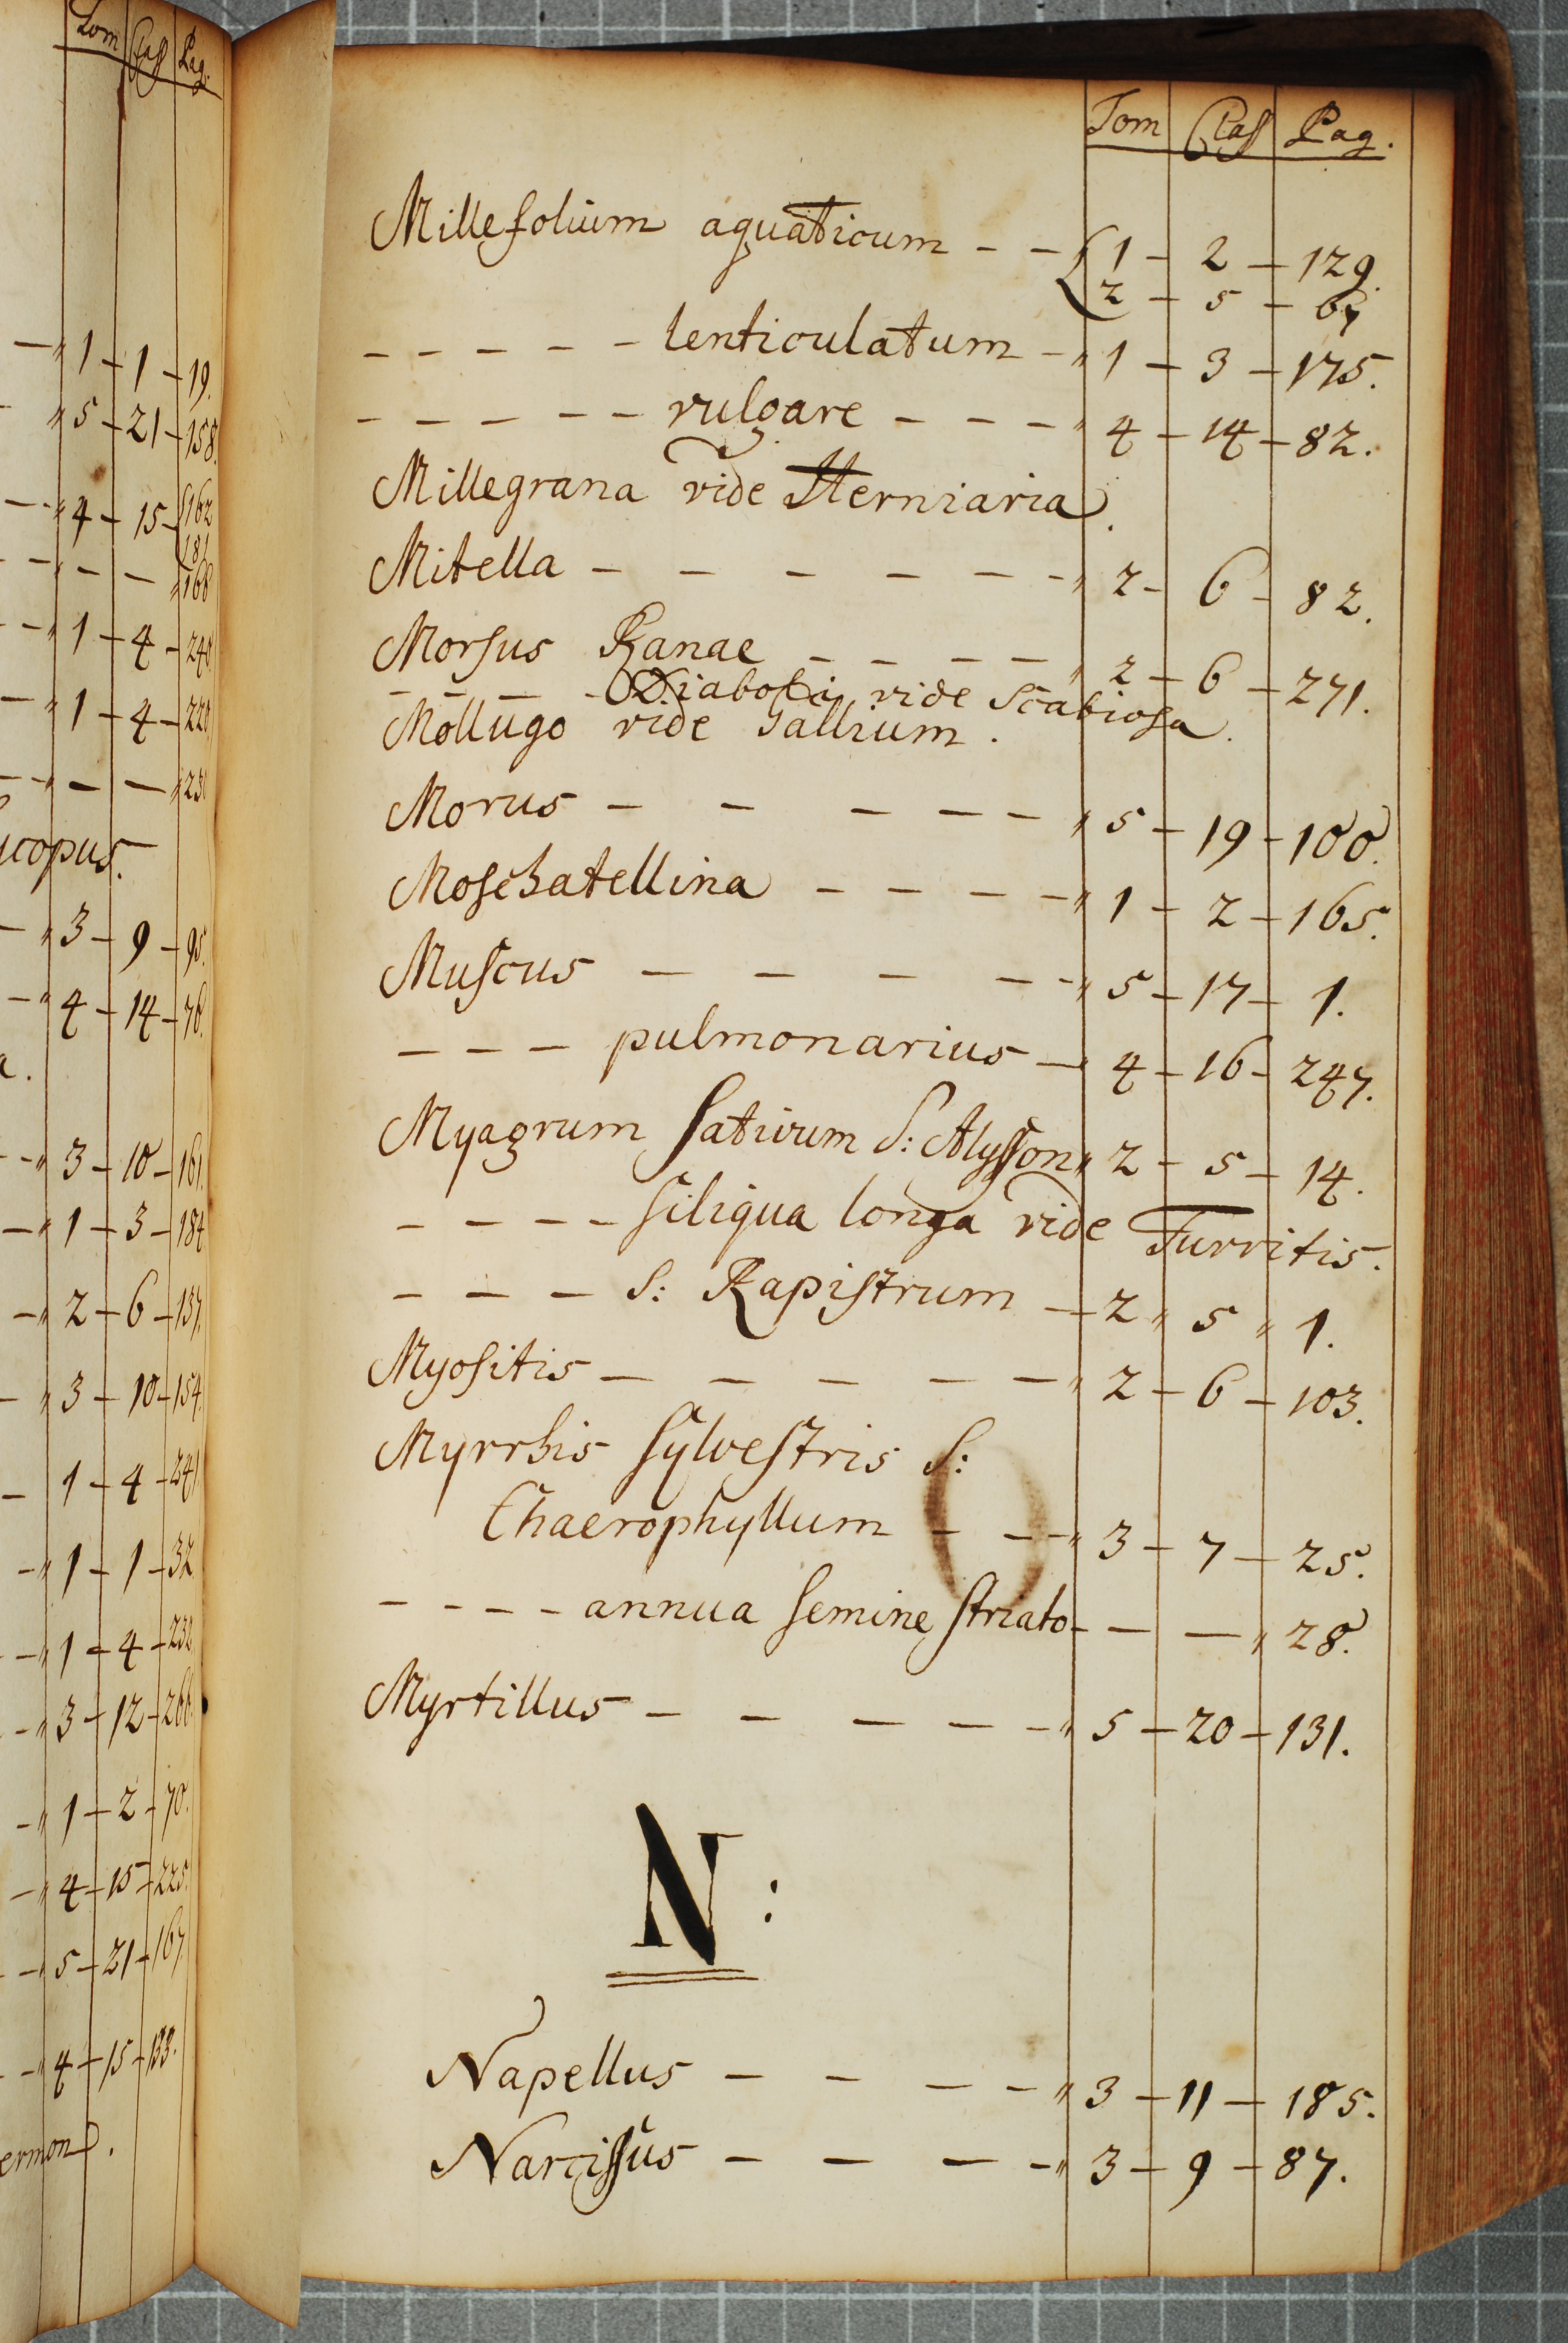 Tom Clas Pag.
1 - 1 - 19.
5 - 21 - 158.
4 - 15 - 162
181
- - 168
1 - 4 - 240.
1 - 4 - 220
- -
copus.
3 - 9 - 95.
4 - 14 - 76.
a.
3 - 10 - 161.
1 - 3 - 184
2 - 6 - 137.
3 - 10 - 154.
1 - 4 - 241.
1 - 1 - 32
1 - 4 - 232
3 - 12 - 266.
1 - 2 - 70.
4 - 15 - 225.
5 - 21 - 167.
4 - 15 - 133.
ermond.
Tom Clas Pag.
Millefolium aquaticum - - { 1 - 2 - 129.
2 - 5 - 67
- - - - - lenticulatum - 1 - 3 - 175.
- - - - - vulgare - - - - 4 - 14 - 82.
Millegrana vide Herniaria.
Mitella - - - - - - 2 - 6 - 82.
Morsus Ranae - - - - 2 - 6 - 271.
- - - - Diaboli vide Scabiosa.
Mollugo vide Gallium.
Morus - - - - - 5 - 19 - 100.
Moschatellina - - - - 1 - 2 - 165.
Muscus - - - - - 5 - 17 - 1.
- - - pulmonarius - 4 - 16 - 247.
Myagrum sativum S: Alysson 2 - 5 - 14.
- - - - siliqua longa vide Turritis.
- - - S: Rapistrum - 2 " 5 " 1.
Myositis - - - - - 2 - 6 - 103.
Myrrhis sylvestris S:
Chaerophyllum - - - 3 - 7 - 25.
- - - - annua semine striato - - - " 28.
Myrtillus - - - - - 5 - 20 - 131.
N:
Napellus - - - - " 3 - 11 - 185.
Narcissus - - - - " 3 - 9 - 87.